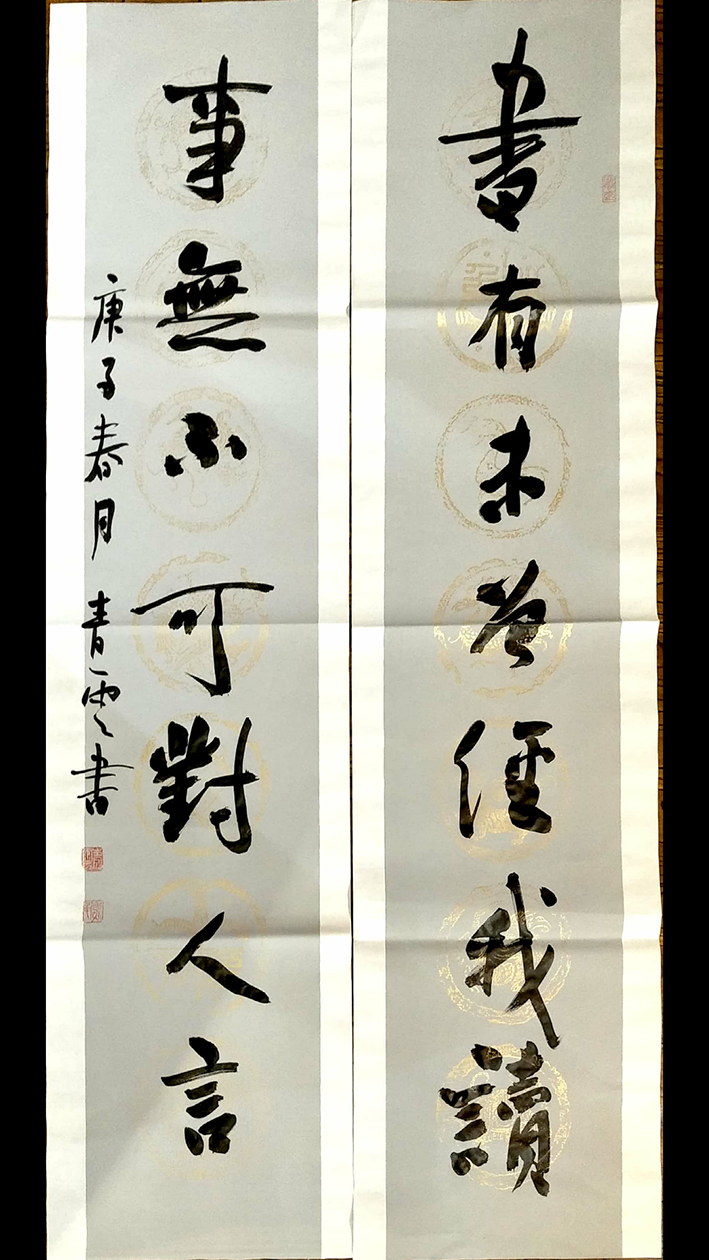 書有未曾經我讀
事無不可對人言
庚子春月 青雲書